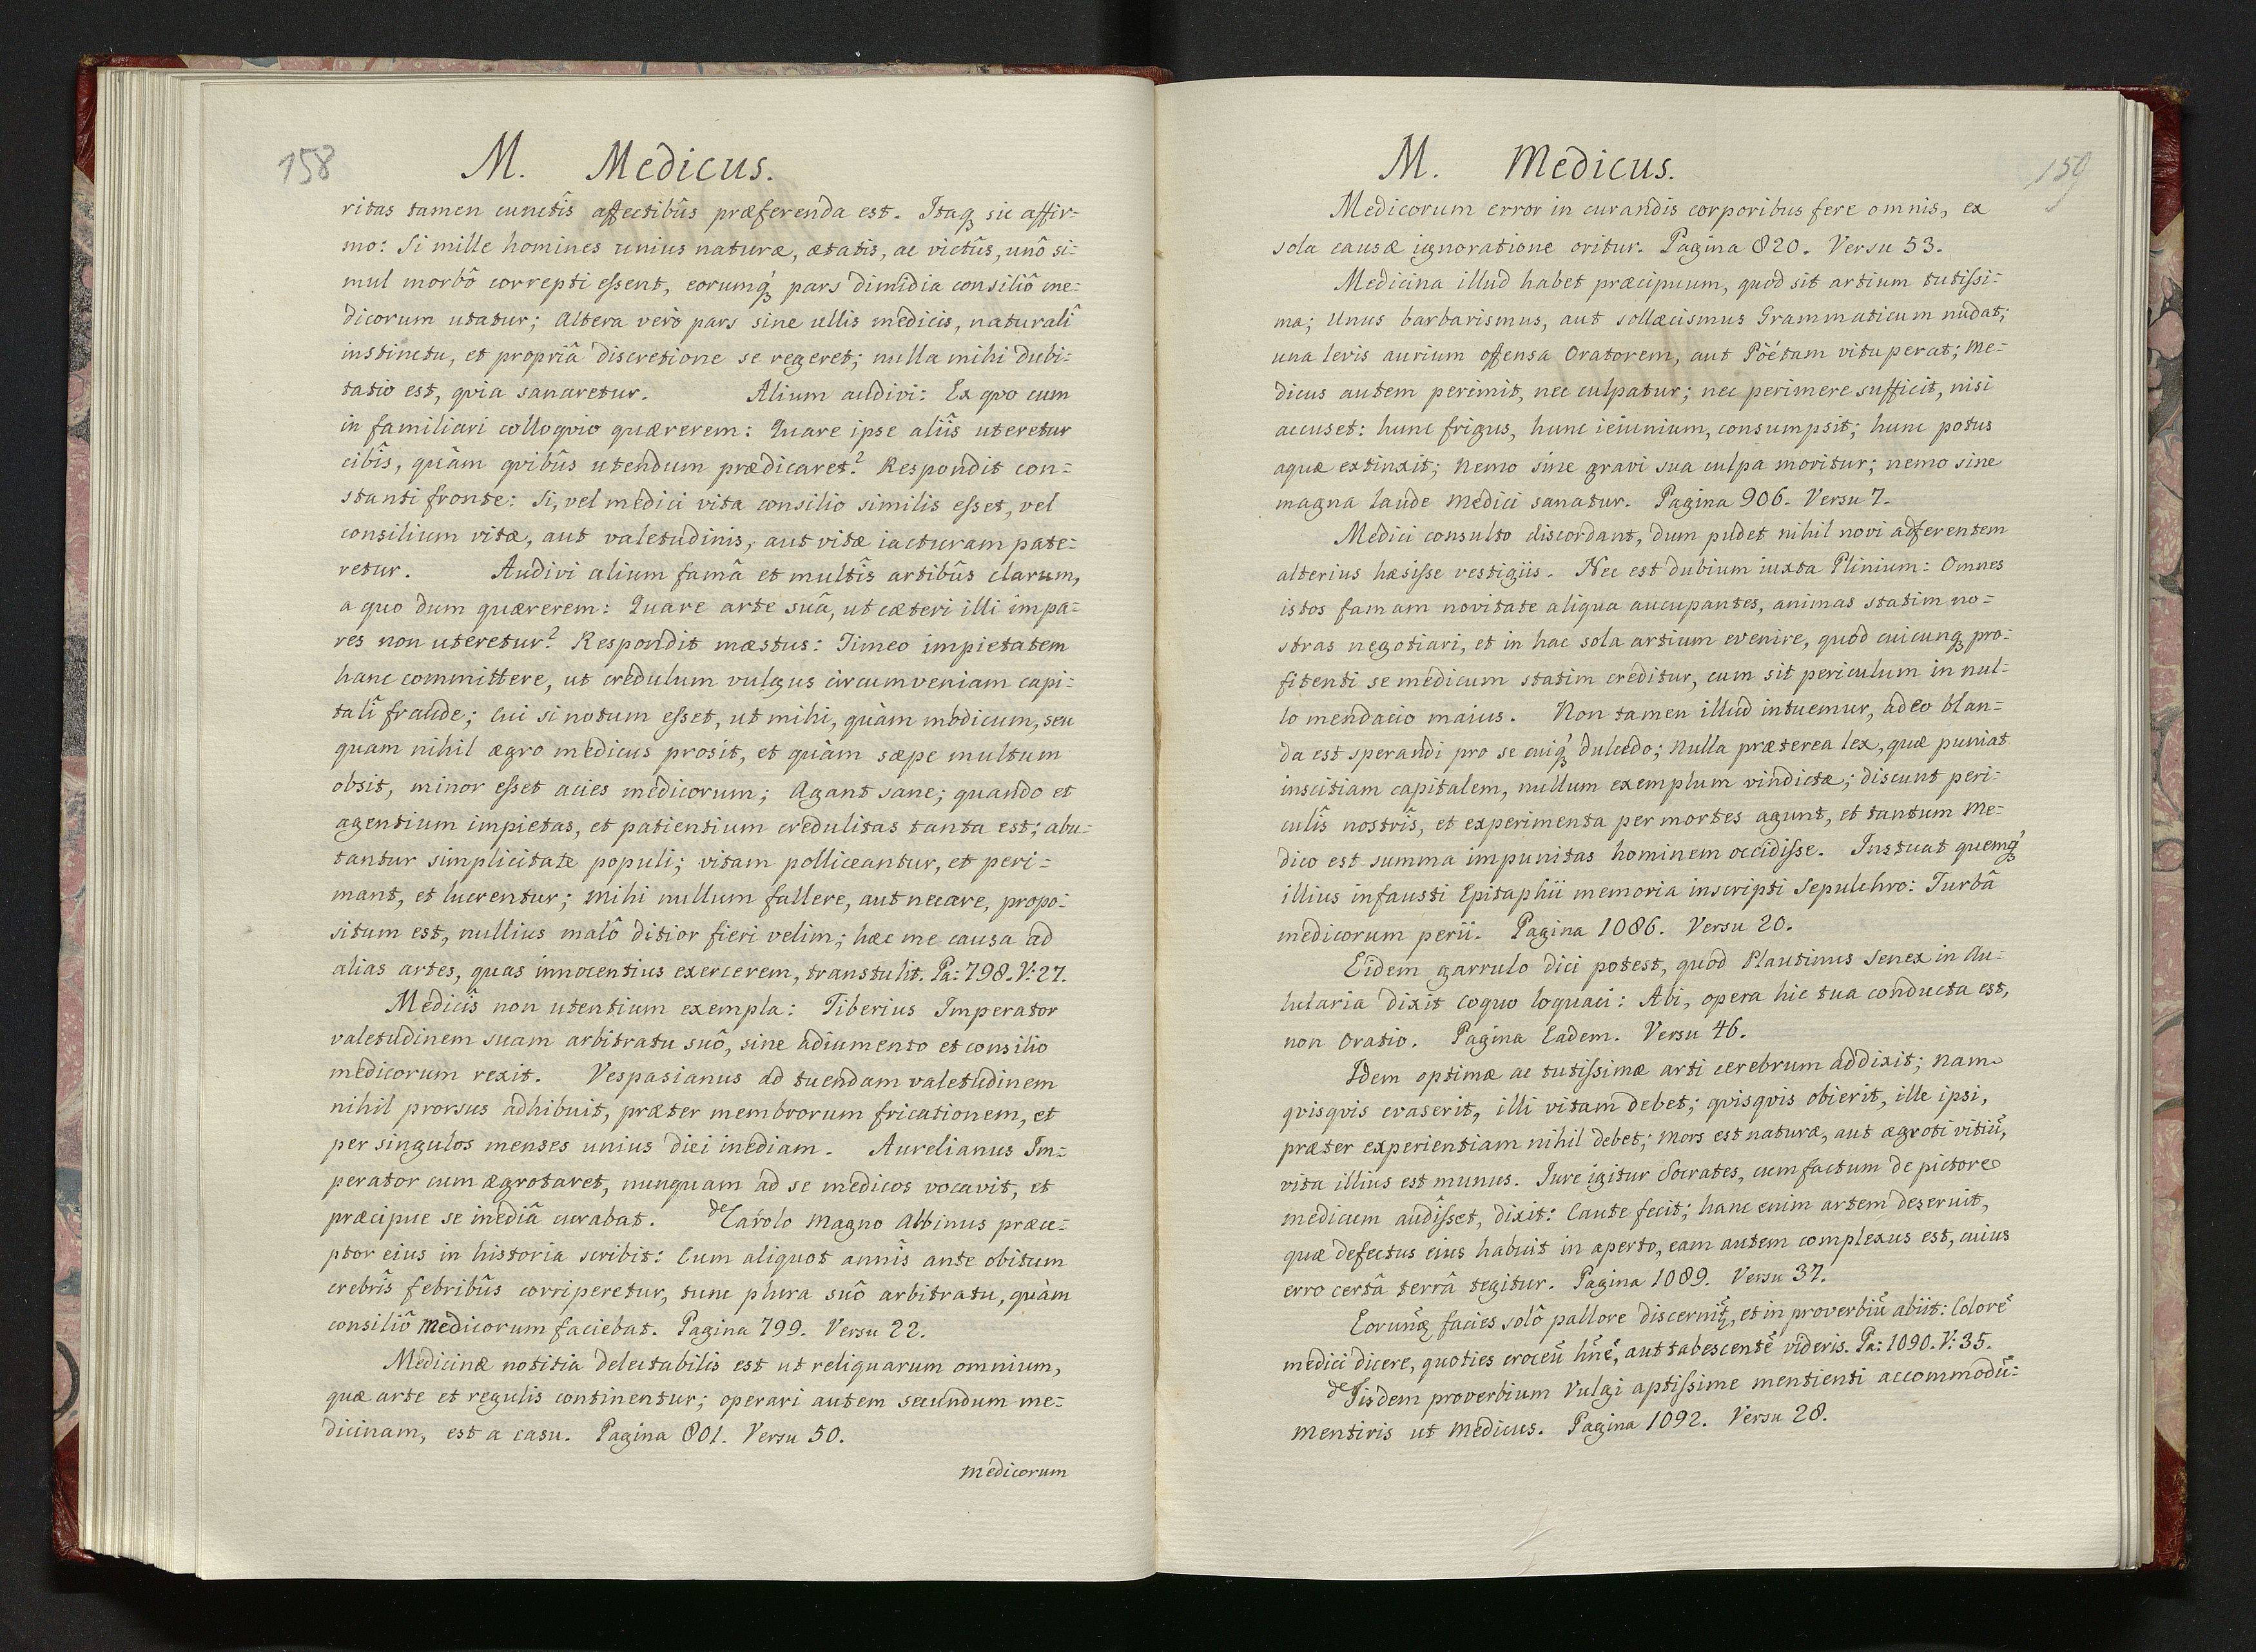 158
M. Medicus.
ritas tamen cunctîs affectibûs præferenda est. Itaq₃ sic affir=
mo: Si mille homines unius naturæ, ætatis, ac victûs, unô si=
mul morbô correpti essent, eorumq́₃ pars dimidia consiliô me=
dicorum utatur; Altera verò pars sine ullis medicis, naturalî
instinctu, et propriâ discretione se regeret; nulla mihi dubi=
tatio est, qvia sanaretur. Alium audivi: Ex qvo cum
in familiari colloqvio quærerem: Quare ipse aliîs uteretur
cibîs, quàm qvibûs utendum prædicaret? Respondit con=
stanti fronte: Si, vel medici vita consilio similis esset, vel
consilium vitæ, aut valetudinis, aut vitæ iacturam pate=
retur. Audivi alium famâ et multîs artibûs clarum,
a quo dum quærerem: Quare arte suâ, ut cæteri illi impa=
res non uteretur? Respondit mæstus: Timeo impietatem
hanc committere, ut credulum vulgus circumveniam capi=
talî fraude; Cui si notum esset, ut mihi, quàm modicum, seu
quam nihil ægro medicus prosit, et quàm sæpe multum
obsit, minor esset acies medicorum; Agant sane; quando et
agentium impietas, et patientium credulitas tanta est; abu=
tantur simplicitate populi; vitam polliceantur, et peri=
mant, et lucrentur; Mihi nullum fallere, aut necare, propo=
situm est, nullius malô ditior fieri velim; hæc me causa ad
alias artes, quas innocentius exercerem, transtulit. Pa: 798. V: 27.
Medicîs non utentium exempla: Tiberius Imperator
valetudinem suam arbitratu suô, sine adiumento et consilio
medicorum rexit. Vespasianus ad tuendam valetudinem
nihil prorsus adhibuit, præter membrorum fricationem, et
per singulos menses unius diei inediam. Aurelianus Im=
perator cum ægrotaret, nunquam ad se medicos vocavit, et
præcipue se inediâ curabat. de Carolo Magno Albinus præce=
ptor eius in historia scribit: Cum aliquot annîs ante obitum
crebrîs febribûs corriperetur, tunc plura suô arbitratu, quàm
consiliô Medicorum faciebat. Pagina 799. Versu 22.
Medicinæ notitia delectabilis est ut reliquarum omnium,
quæ arte et regulis continentur; operari autem secundum me=
dicinam, est a casu. Pagina 801. Versu 50.
Medicorum
159
M. Medicus.
Medicorum error in curandis corporibus fere omnis, ex
sola causæ ignoratione oritur. Pagina 820. Versu 53.
Medicina illud habet præcipuum, quod sit artium tutissi=
ma; Unus barbarismus, aut sollæcismus Grammaticum nudat;
una levis aurium offensa Oratorem, aut Pöétam vituperat; Me=
dicus autem perimit, nec culpatur; nec perimere sufficit, nisi
accuset: hunc frigus, hunc ieiunium, consumpsit; hunc potus
aquæ extinxit; Nemo sine gravi sua culpa moritur; nemo sine
magna laude Medici sanatur. Pagina 906. Versu 7.
Medici consulto discordant, dum pudet nihil novi adferentem
alterius hæsisse vestigiis. Nec est dubium iuxta Plinium: Omnes
istos famam novitate aliqua aucupantes, animas statim no=
stras negotiari, et in hac sola artium evenire, quod cuicunq₃ pro=
fitenti se medicum statim creditur, cum sit periculum in nul=
lo mendacio maius. Non tamen illud intuemur, adeo blan=
da est sperandi pro se cuiq́₃ dulcedo; Nulla præterea lex, quæ puniat
inscitiam capitalem, nullum exemplum vindictæ; discunt peri=
culîs nostrîs, et experimenta per mortes agunt, et tantum Me=
dico est summa impunitas hominem occidisse. Instuat quemq́₃
illius infausti Epitaphii memoria inscripti Sepulchro: Turbâ
medicorum perii. Pagina 1086. Versu 20.
Eidem garrulo dici potest, quod Plautinus Senex in Au=
lularia dixit Coquo loquaci: Abi, opera hic tua conducta est,
non Oratio. Pagina Eadem. Versu 46.
Idem optimæ ac tutissimæ arti cerebrum addixit; Nam
qvisqvis evaserit, illi vitam debet; qvisqvis obierit, ille ipsi,
præter experientiam nihil debet; Mors est naturæ, aut ægroti vitiū,
vita illius est munus. Jure igitur Socrates, cum factum de pictore
medicum audîsset, dixit: Caute fecit; hanc enim artem deseruit,
quæ defectus eius habuit in aperto, eam autem complexus est, cuius
erro certâ terrâ tegitur. Pagina 1089. Versu 37.
Eorunq₃ facies solô pallore discernit̃, et in proverbiū abiit: Colorē
medici dicere, quoties croceū hn̄e, aut tabescentē videris. Pa: 1090. V: 35.
de Iisdem proverbium Vulgi aptissime mentienti accommodū:
Mentiris ut Medicus. Pagina 1092. Versu 28.